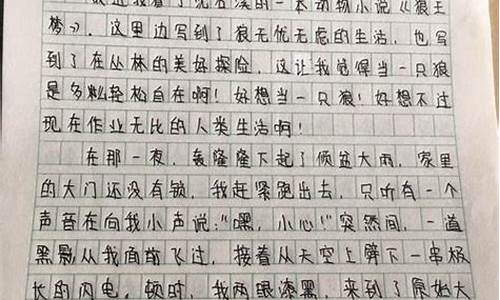 最近我看了沈石溪的一本动物小说《狼王
梦》。这里边写到了狼无忧无虑的生活，也写
到了在丛林的美好探险，这让我觉得当一只狼
是多么轻松自在啊！好想当一只狼！好想不过
现在作业无比的人类生活啊！
在那一夜，轰隆隆下起了倾盆大雨，家里
的大门还没有锁，我赶紧跑出去，只听有一个
声音在向我小声说：“嘿，小心！”突然间，一道
黑影从我面前飞过，接着从天空上劈下一串极
长的闪电，顿时，我两眼漆黑，来到了原始大